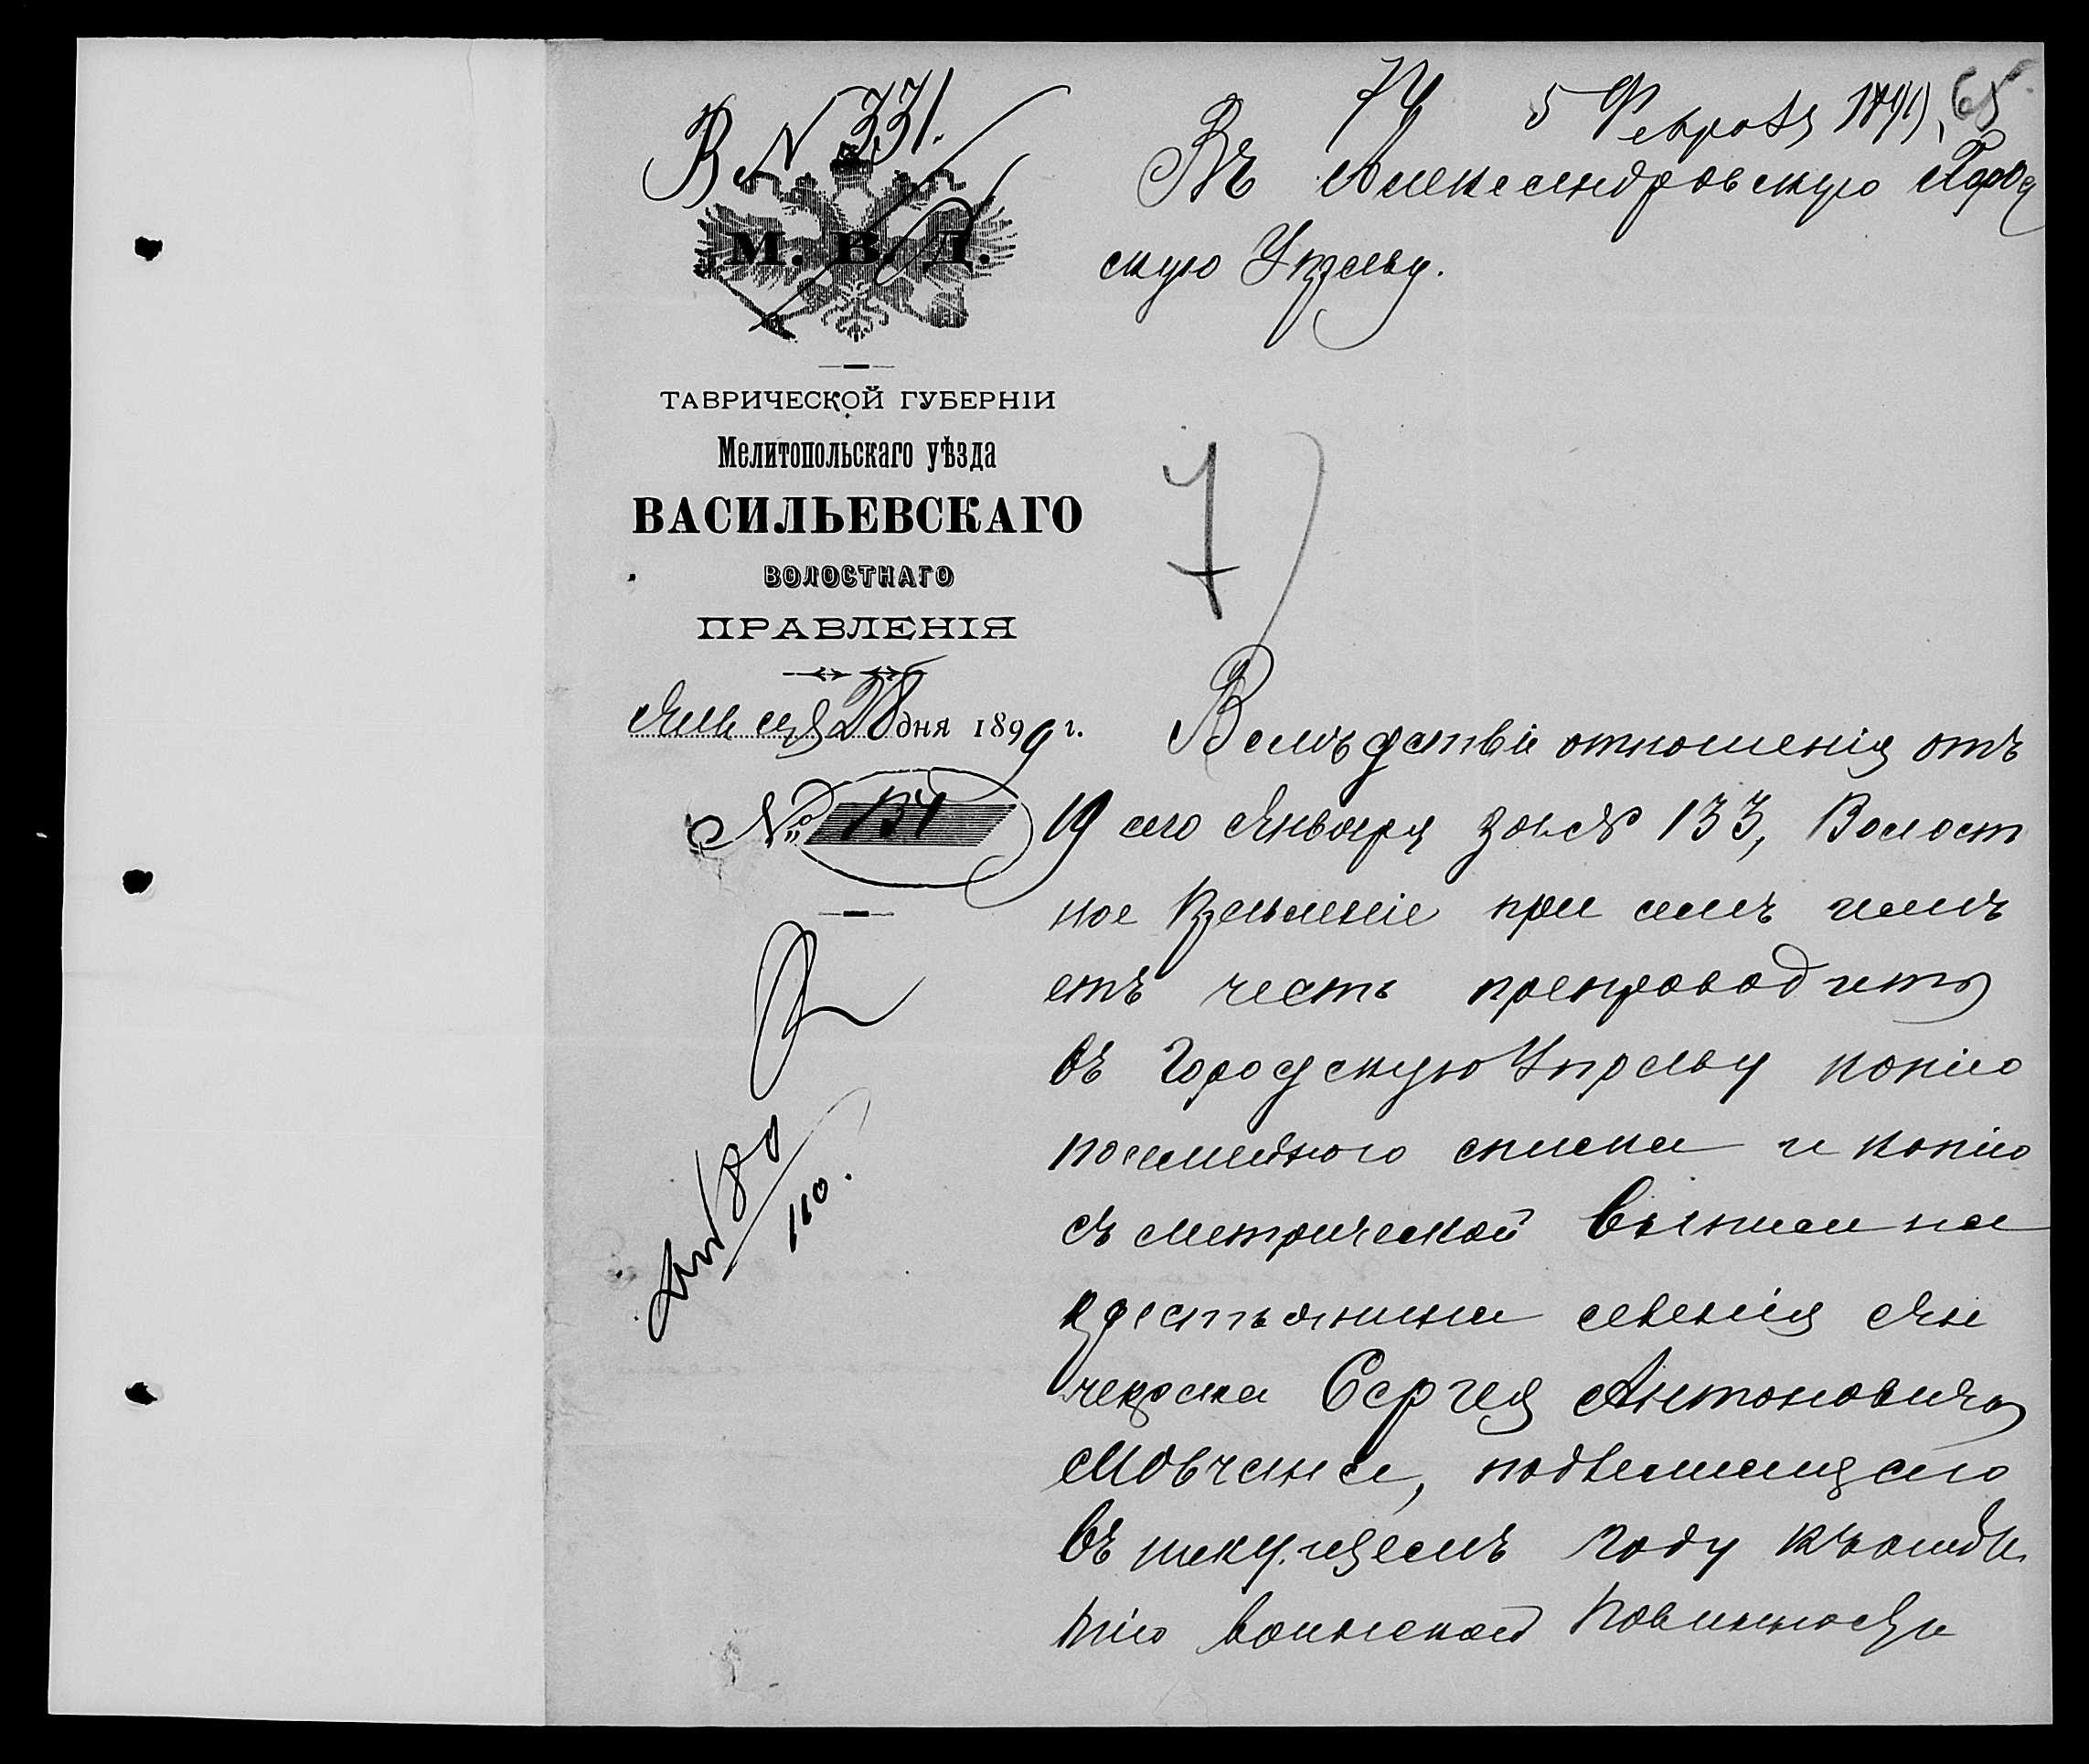 В № 331.
74 5 Февраля 1899, 65
Въ Александровскую Город
скую Управу.
М. В. Д.
ТАВРИЧЕСКОЙ ГУБЕРНІИ
Мелитопольскаго уѣзда
ВАСИЛЬЕВСКАГО
ВОЛОСТНАГО
ПРАВЛЕНІЯ
Января 28 дня 1899 г.
№ 154
180
110.
7
Вслѣдствіе отношенія отъ
19 сего Января за № 133, Волост
ное Правленіе при семъ имѣ
етъ честь препроводить
въ Городскую Управу копію
посемейнаго списка и копію
съ метрической выписи на
крестьянина селенія Ян
чекрака Сергея Антоновича
Мовчана, подлежащаго
въ текущемъ году къ отбы
тію воинской повинности